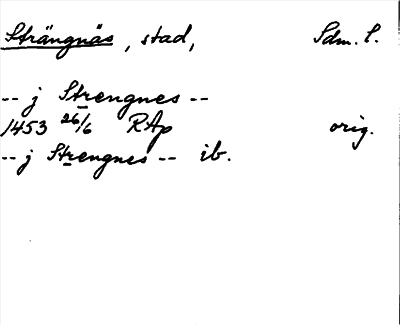 Strängnäs, stad, Sdm. l.
-- j Strengnes --
1453 26/6 RAp orig.
-- j Strengnes -- ib.